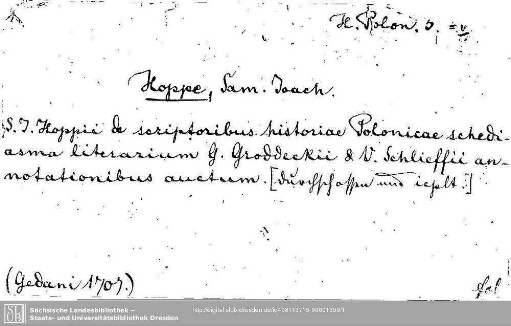 H. Polon. 5.
Hoppe, Sam. Joach.
S. J. Hoppii de scriptoribus historiae Polonicae schedi-
asma literarium G. Groddeckii & V. Schlieffii an-
notationibus auctum. [durchschossen und
(Gedani 1707.)
fol
Sächsische Landesbibliothek –
Staats- und Universitätsbibliothek Dresden